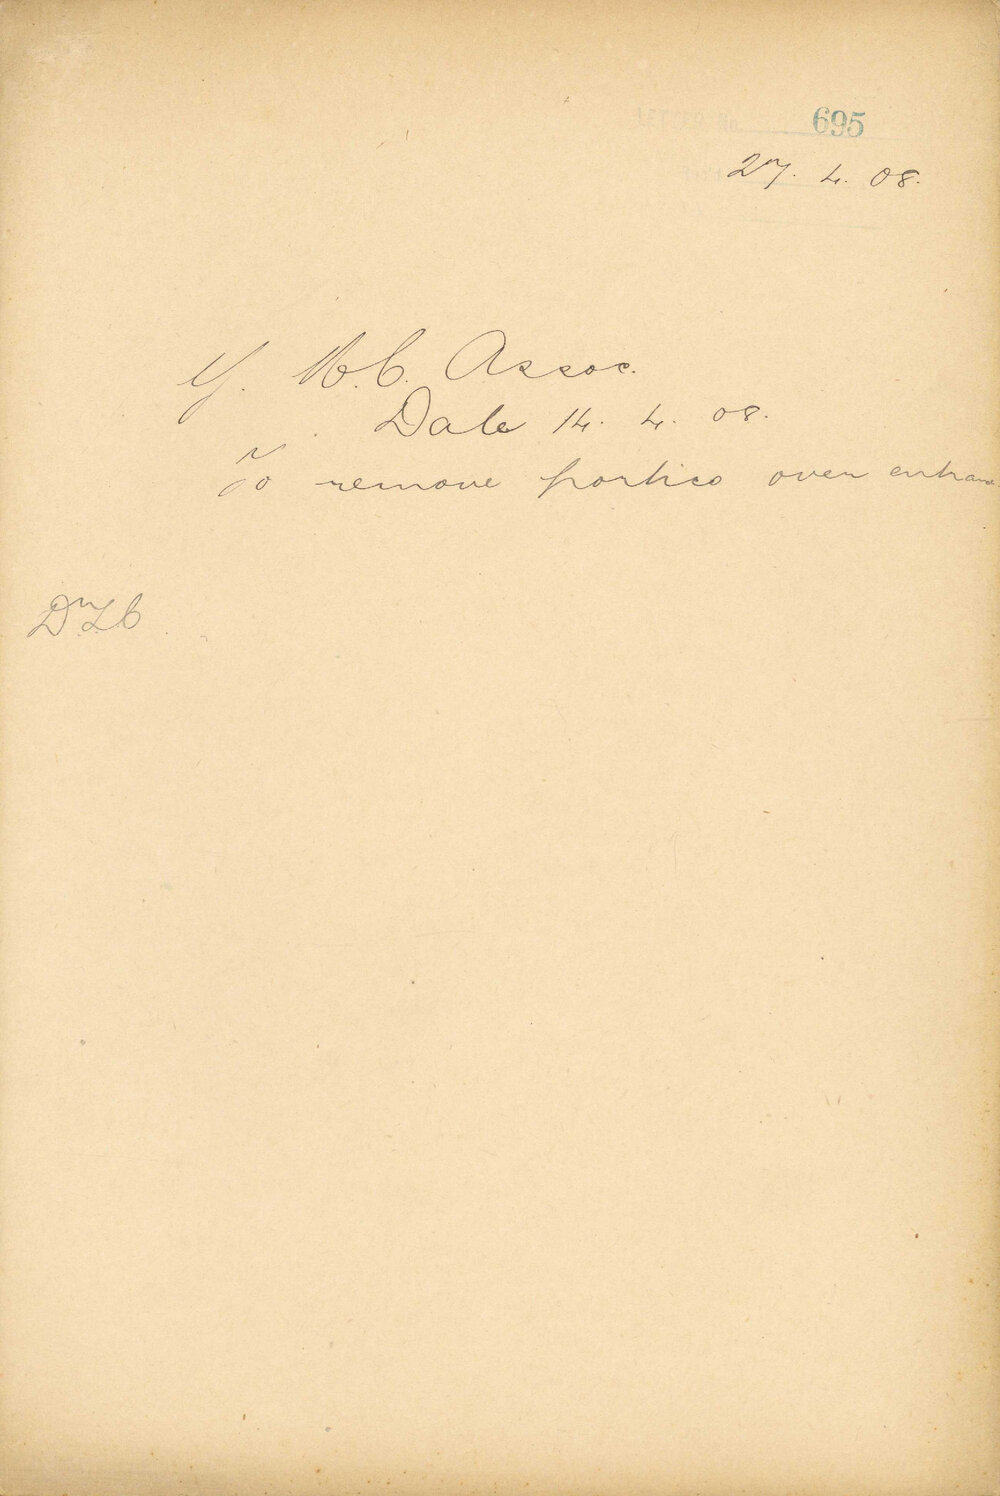 LETTER No. 695
27. 4. 08.
Y. M. C. Assoc.
Date 14. 4. 08.
To remove portico over entrance